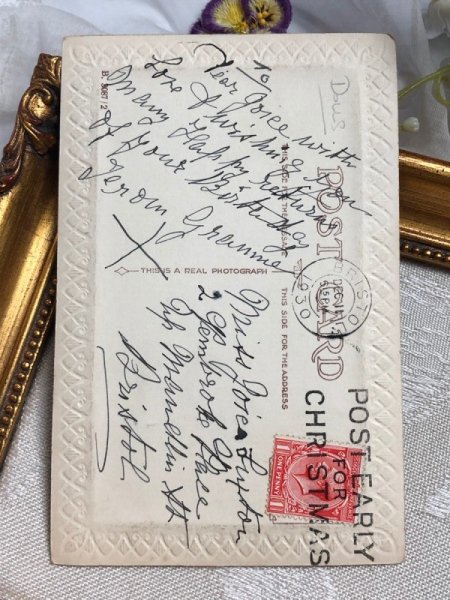 Dows
B. 3087/2
POST CARD
THIS SIDE FOR THE MESSAGE
THIS SIDE FOR THE ADDRESS
THIS IS A REAL PHOTOGRAPH
To
Dear Joice with
Love & wishing you
Many Happy Returns
of Your Birthday
from Grannie
X
Miss Joice
2 Pembroke Place
Maudlin St
Bristol
BRISTOL
DEC
1930
POST EARLY
FOR
CHRISTMAS
1 ONE PENNY 1